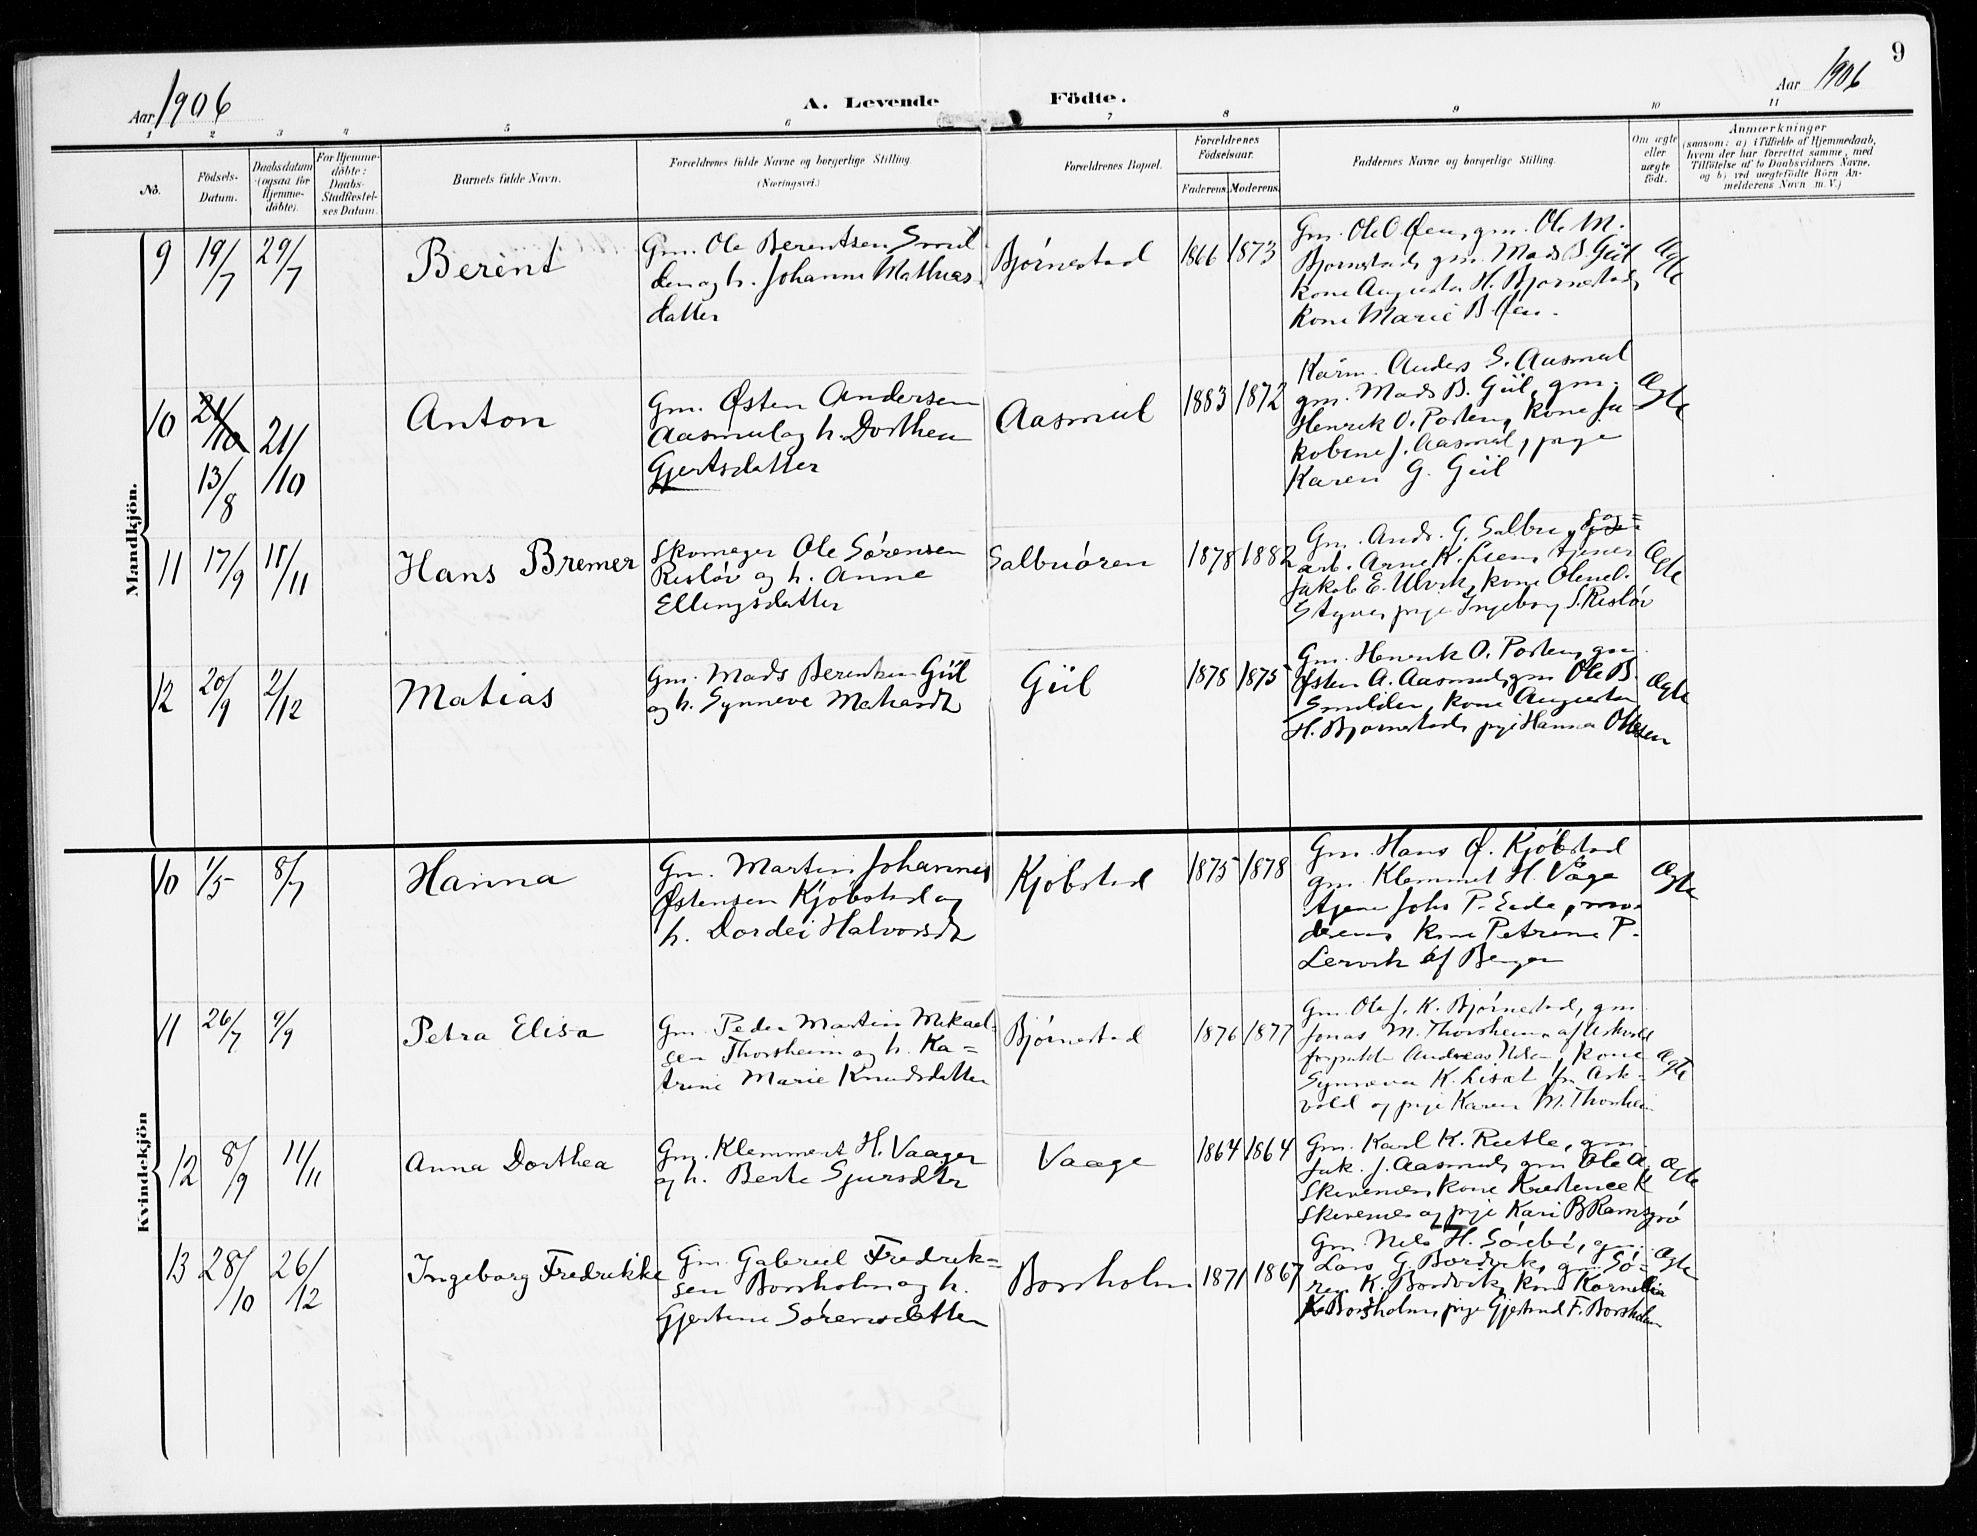 9
Aar 1906
A. Levende Födte.
Aar 1906
1 2 3 4 5 6 7 8 9 10 11
No.
Födsels-
Datum.
Daabsdatum
(ogsaa for
Hjemme-
döbte).
For Hjemme-
döbte:
Daabs-
Stadfæstel-
ses Datum.
Barnets fulde Navn.
Forældrenes fulde Navne og borgerlige Stilling.
(Næringsvei.)
Forældrenes Bopæl.
Forældrenes
Födselsaar.
Faderens. Moderens.
Faddernes Navne og borgerlige Stilling.
Om ægte
eller
uægte
födt.
Anmærkninger
(saasom: a) i Tilfælde af Hjemmedaab,
hvem der har forrettet samme, med
Tilföielse af to Daabsvidners Navne,
og b) ved uægtefödte Börn An-
melderens Navn m. V.)
Mandkjön.
9
19/7
29/7
Berent
Gm. Ole Berentsen Smil
den og h. Johanne Mathias
datter
Bjørnestad
1866
1873
Gm. Ole O Øen, gm. Ole M.
Bjørnestad, gm. Mads B. Giil
kone Augusta H. Bjørnestad,
kone Marie B. Øen.
Ægte
10
21/10
13/8
21/10
Anton
Gm. Østen Andersen
Aasmul og h. Dorthea
Gjertsdatter
Aasmul
1883
1872
Kårm. Anders S. Aasmul
gm. Mads B. Giil, gm.
Henrik O. Porten, kone Ja
kobine J. Aasmul, pige
Karen G. Giil
Ægte
11
17/9
11/11
Hans Bremer
Skomager Ole Sørensen
Risløv og h. Anne
Ellingsdatter
Salbuøren
1878
1882
Gm. And. G. Salbu,
arb. Arne K. Lien, tjener
Jakob E. Ulvik, kone Oline O.
pige Ingeborg S. Risløv
Ægte
12
20/9
2/12
Matias
Gm. Mads Berentsen Giil
og h. Synneve
Giil
1878
1875
Gm. Henrik O. Porten, gm
Østen A. Aasmul, gm Ole B.
Smilden, kone Augusta
H. Bjørnestad, pige Hanna Olsen
Ægte
Kvindekjön
10
1/5
8/7
Hanna
Gm. Martin Johannes
Østensen Kjøbstad og
h. Dordei Halvorsdt
Kjøbstad
1875
1878
Gm. Hans Ø. Kjøbstad
gm. Klemmet H. Våge
tjener Johs P. Eide, mo-
deren, kone Petrine P.
Lervik af Bergen
Ægte
11
26/7
9/9
Petra Elisa
Gm. Peder Martin Mikael-
sen Thorsheim og h. Ka=
trine Marie Knudsdatter
Bjørnestad
1876
1877
Gm. Ole J. K. Bjørnestad, gm
Jonas M. Thorsheim af Askvold
forpakt. Andreas Nilsen, kone
Synneva K. Liset fra Ask-
vold og pige Karen M. Thorsheim
Ægte
12
8/9
11/11
Anna Dorthea
Gm. Klemmet H. Vaage
og h. Berte Sjursdtr
Vaage
1864
1864
Gm. Karl K. Rutle, gm.
Jak. J. Aasmul, gm Ole A.
Skivenes, kone Kristence K
Skivenes og pige Kari B Ramsgrø
Ægte
13
28/10
26/12
Ingeborg Fredrikke
Gm. Gabriel Fredrik=
sen Borsholm og h.
Gjertine Sørensdatter
Borsholm
1871
1867
Gm. Nils H. Sørebø, gm.
Lars G. Bordvik, gm. Sø-
ren K. Bordvik, kone Kornelia
K. Borsholm, pige Gjertrud F. Borsholm
Ægte